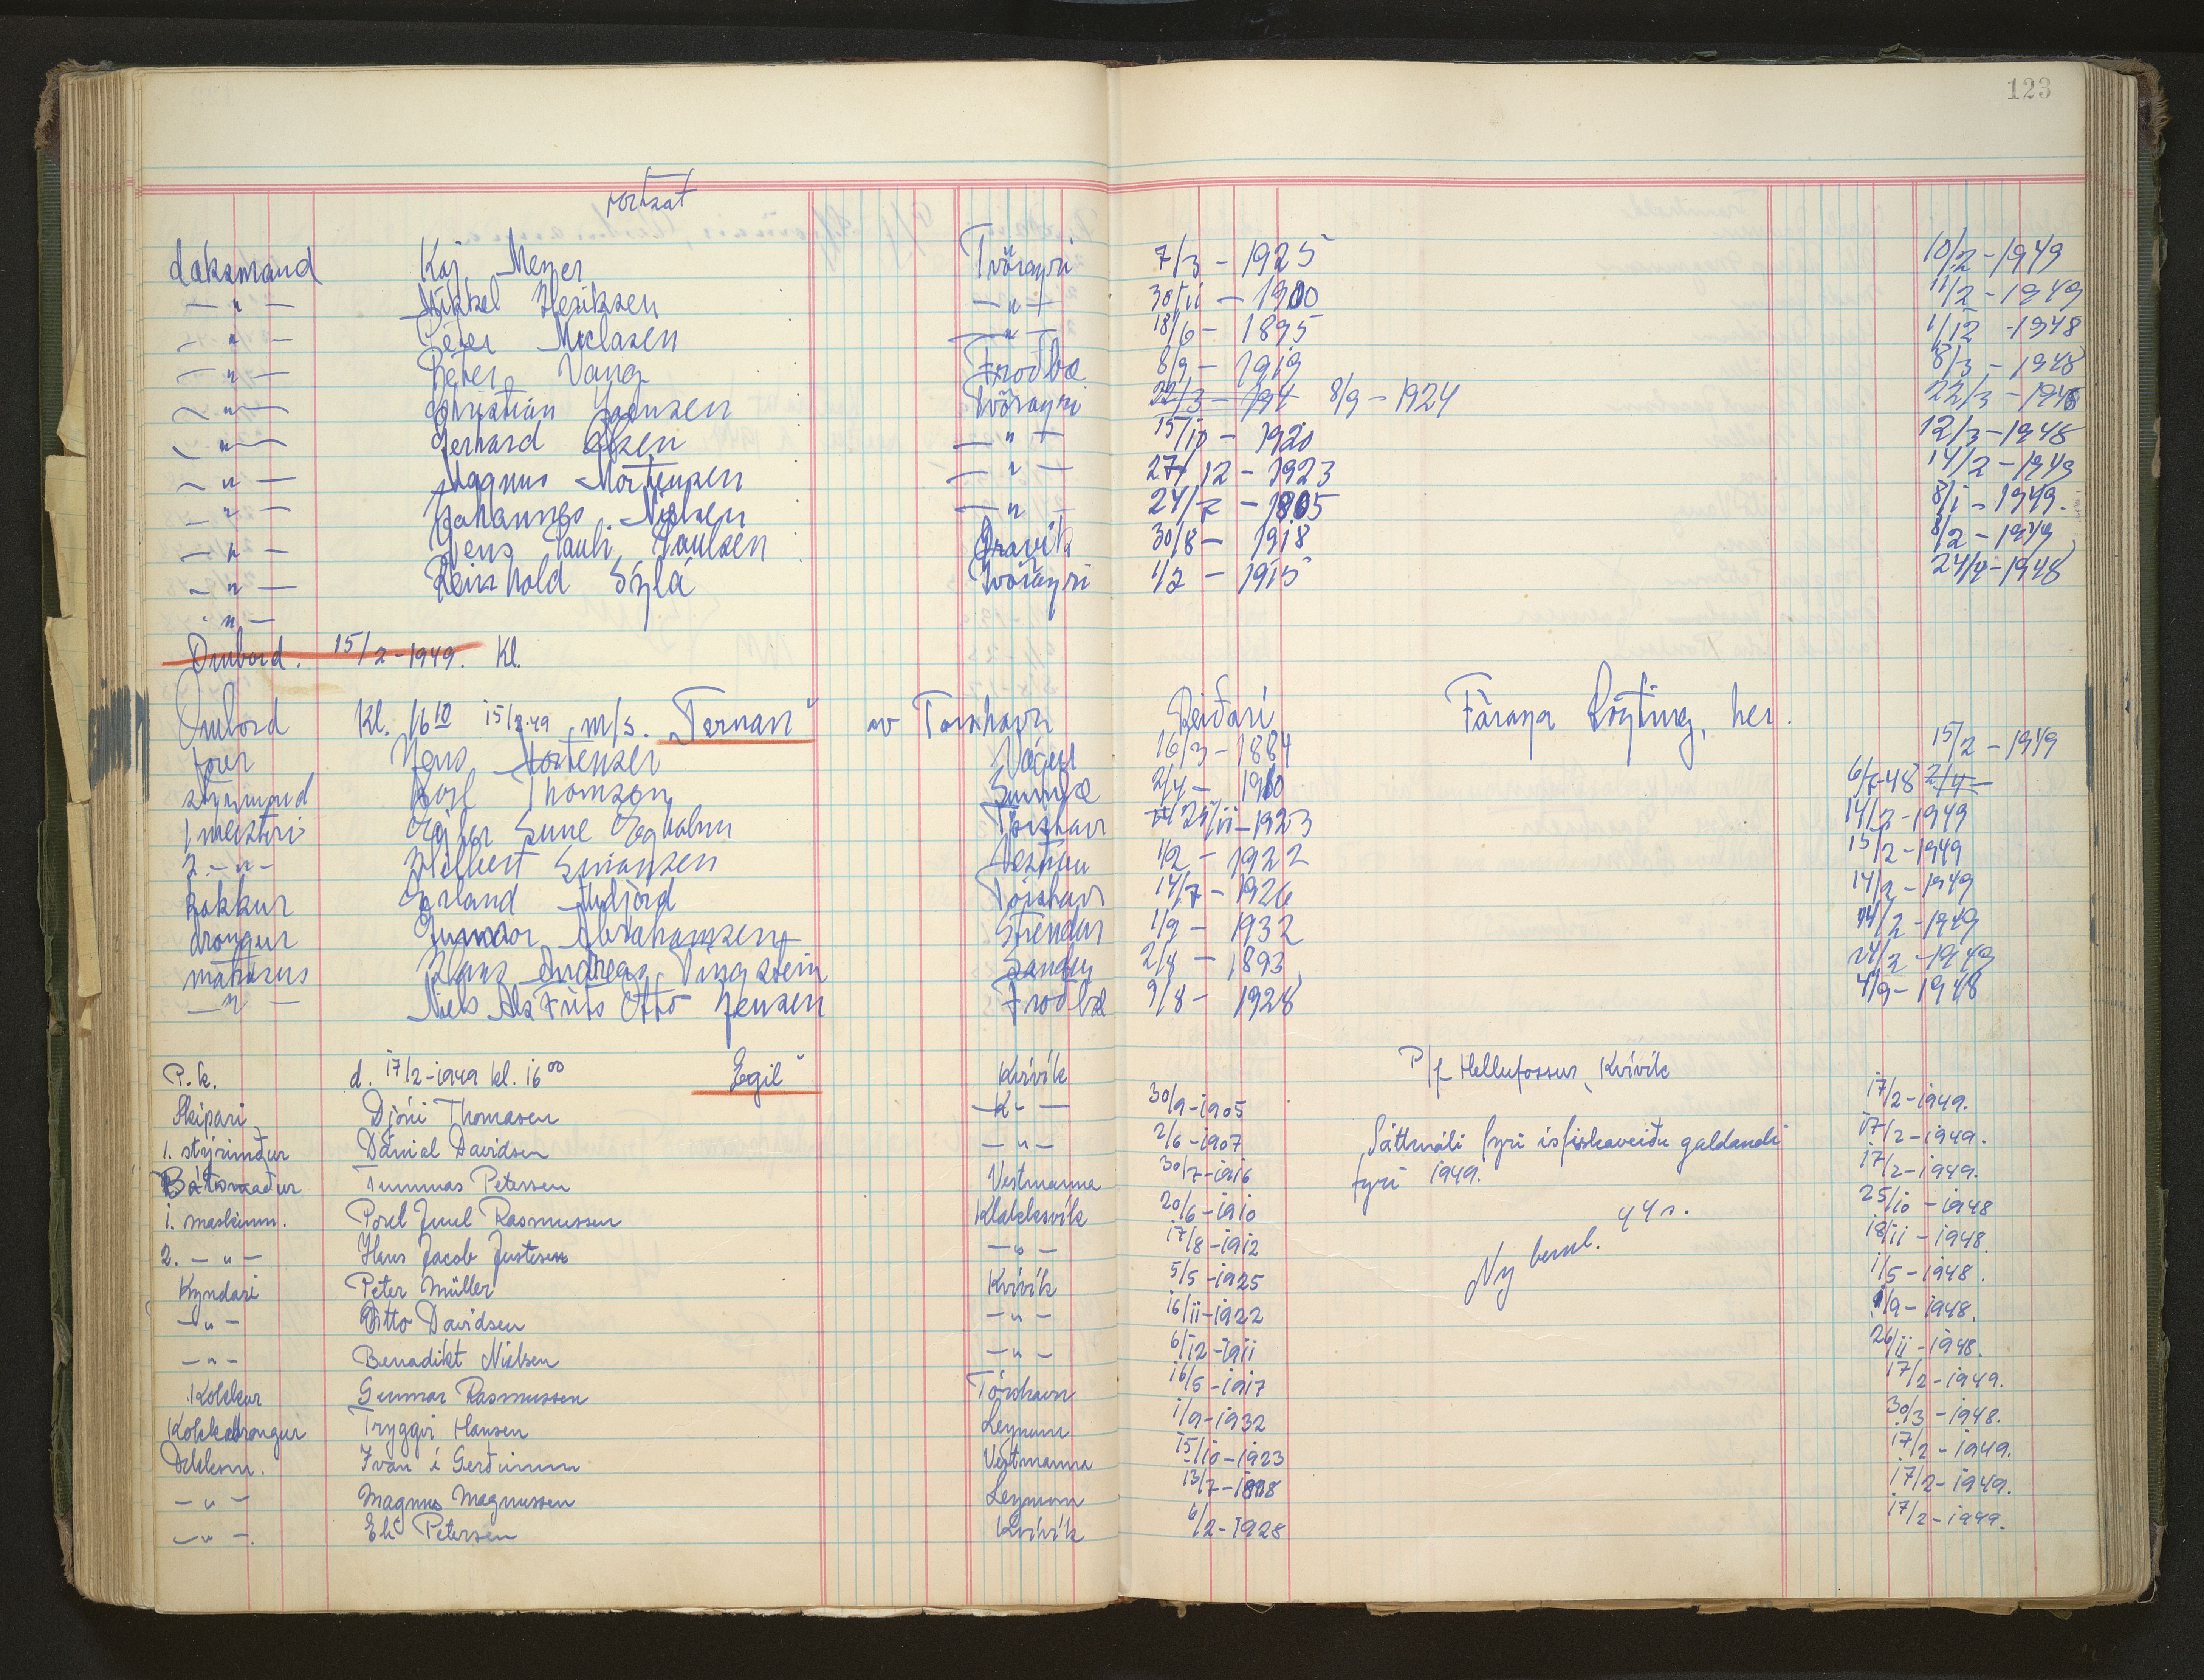 123
fortsat
daksmand Kaj Meyer Tvörayri 7/3 - 1925 10/2 - 1949
— " — Mikkel Henriksen — " — 30/11 - 1900 11/2 - 1949
— " — Peter Niclasen — " — 18/6 - 1895 1/12 - 1948
— " — Peter Vang Froðbæ 8/9 - 1919 8/3 - 1948
— " — Christian Joensen Tvörayri 22/3 - 194 8/9 - 1924 22/3 - 1948
— " — Gerhard Olsen — " — 15/10 - 1920 12/3 - 1948
— " — Magnus Mortensen — " — 27/12 - 1923 14/2 - 1949
— " — Johannes Nielsen — " — 24/7 - 1905 8/1 - 1949.
— " — Jens Pauli Poulsen Øravík 30/8 - 1918 8/2 - 1949
— " — Reinhold Sýlá Tvörayri 1/2 - 1915 24/4 - 1948
" —
Ombord. 15/2 - 1949. Kl.
Ombord Kl. 16 10 15/2-49 m/s. „Ternan" av Torshavn Reiðari Føroya Løgting, her.
förer Mortensen Vágur 16/3 - 1884 15/2 - 1949
styrimand Thomsen Sumbæ 2/4 - 1910 6/7-48 2/4 -
1 meistri Ejler Sune Egholm Tórshavn 24/11 - 1923 14/2 - 1949
2. — " — Hilbert Simonsen Vestman 1/2 - 1922 15/2 - 1949
kokkur Erland Midjord Tórshavn 14/7 - 1926 14/2 - 1949
drongur Gunnar Abrahamsen Strendur 1/9 - 1932 14/2 - 1949
matrsus Hans Andreas Dingstein Sandoy 2/4 - 1893 14/2 - 1949
— " — Niels Als Friis Otto Jensen Froðbæ 9/8 - 1928 4/9 - 1948
P.k. d. 17/2-1949 kl. 16 00 Egil" Kvívík P/f Hellufossur, Kvívík
Skipari Djóni Thomasen — " — 30/9-1905 17/2-1949.
1. stýrimaður Dánial Davidsen — " — 2/6-1907 Sáttmáli fyri ísfiskaveiðu galdandi 17/2-1949.
Bátsmaður Tummas Petersen Vestmanna 30/7-1916 fyri 1949. 17/2-1949.
1. maskinm. Poul Juul Rasmussen Klakksvík 20/6-1910 44 r. 25/10-1948
2. — " — Hans Jacob Justesen — " — 17/8-1912 Ny beml. 18/11-1948.
Kyndari Peter Müller Kvívík 5/5-1925 1/5-1948.
— " — Otto Davidsen — " — 16/11-1922 1/9-1948.
— " — Benadikt Nielsen — " — 6/12-1911 26/11-1948.
Kokkur Gunnar Rasmussen Tórshavn 16/5-1917 17/2-1949.
Kokkadrongur Tryggvi Hansen Leynum 1/9-1932 30/3-1948.
Dekksm. Ivan í Gerðinum Vestmanna 15/10-1923 17/2-1949.
— " — Magnus Magnussen Leynum 13/7-1898 17/2-1949.
— " —. Eli Petersen Kvívík 6/2-1928 17/2-1949.